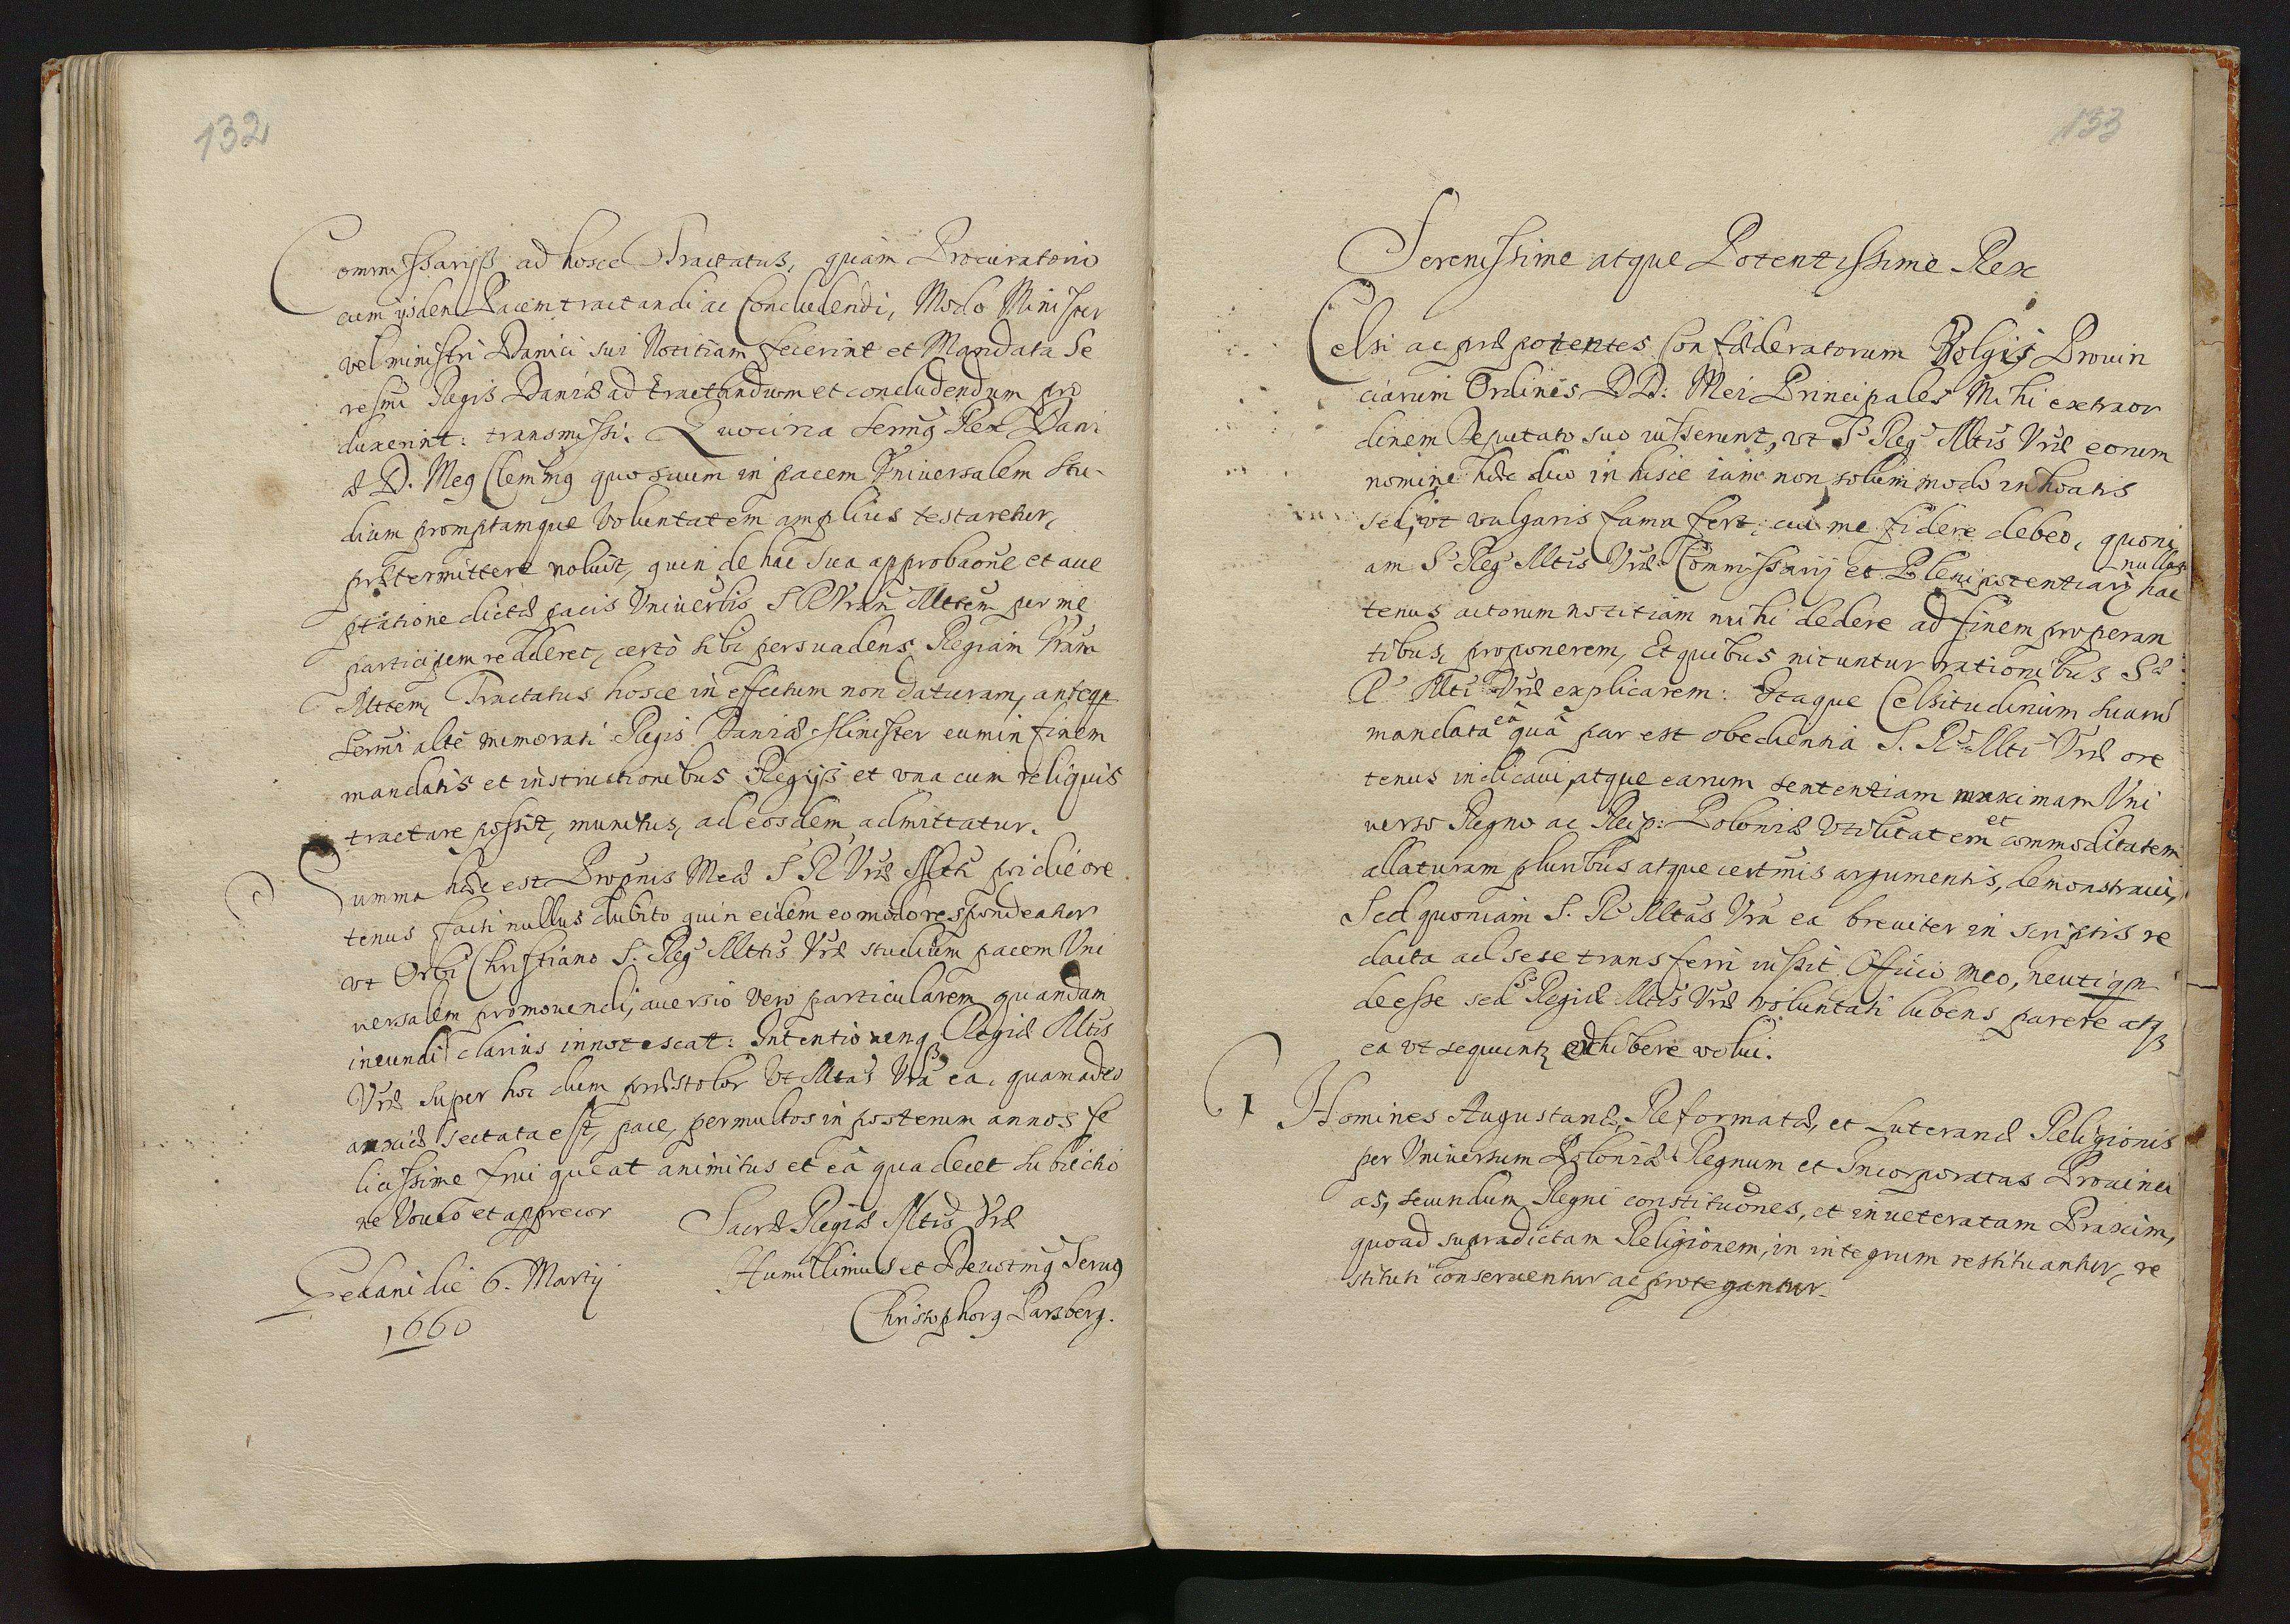 132
Commissarijs ad hosce Tractatus, quàm Procuratorio
cum ijsdem Pacem tractandi ac Concludendi, Modo Minister
vel ministri Danici sui Notitiam fecerint et Mandata Se
resmi Regis Daniæ ad tractandum et concludendum pro
duxerint: transmissi. Quocirca Sermus Rex Dani
æ D. Meus Clemmus quo suum in pacem Universalem stu-
dium promptamque voluntatem amplius testaretur,
prætermittere noluit, quin de hac sua approbaõne et acce
ptatione dictæ pacis Universlis S R Vram Alttem per me
participem redderet, certò sibi persuadens Regiam Vram
Alttem, Tractatus hosce in effectum non daturam, anteqm
Sermi altè memorati Regis Daniæ Minister eum in finem
mandatis et instructionibus Regijs et una cum reliquis
tractare possit, munitus, ad eosdem admittatur.
Summa hæc est Propnis Meæ S R Vræ Altti pridie ore
tenus facti nullus dubito quin eidem eo modo respondeatur
vt Orbi Christiano S. Reg Alttis Vræ studium pacem Uni
versalem promovendi, aversio vero particularem quandam
ineundi clarius innotescat: Intentionemq3 Regiæ Alttis
Vræ super hoc dum præstolor Vt Alttas Vra ea, quam adeo
anxiè sectata est, pace, permultos in posterum annos fe
licissime frui queat animitus et eâ qua decet subiectio
ne Voveo et apprecor
Sacræ Regiæ Alttis Vræ
Gedani die 6. Martij
Humillimus et Devotmus Servus
1660
Christophorus Parsberg.
133
Serenissime atque Potentissime Rex
Celsi ac præpotentes Confæderatorum Belgij Provin
ciarum Ordines DD: Mei Principales Mihi extraor
dinem Deputato suo iusserunt, vt S Reg Alttis Vræ eorum
nomine hæc duo in hisce iam non solummodo inhoatis
sed, vt vulgaris fama fert, cui me fidere debeo, quoni
am S Reg Alttis Vræ Commissarij et Plenipotentiarij nullam hac
tenus actorum notitiam mihi dedere ad finem properan
tibus, proponerem, Et quibus nituntur rationibus Sæ
R Altti Vræ explicarem: Itaque Celsitudinum suarũ
mandata eâ quâ par est obedientia S. R Altti Vræ ore
tenus indicavi, atque earum sententiam maximam Uni
verso Regno ac Reip: Poloniæ Vtilitatem et commoditatem
allaturam pluribus atque certmis argumentis, demonstravi,
Sed quoniam S. R Alttas Vra ea breviter in scriptis re
dacta ad sese transferri iussit Officio meo, neutiqm
deesse sed S Regiæ Alttis Vræ voluntati lubens parere atq3
ea vt sequuntr exhibere volui.
1 Homines Augustanæ, Reformatæ, et Luteranæ Religionis
per Universum Poloniæ Regnum et Incorporatas Provinci
as, secundum Regni constituõnes, et inveteratam Praxim,
quoad supradictam Religionem, in integrum restituantur, re
stituti conserventur ac protegantur.